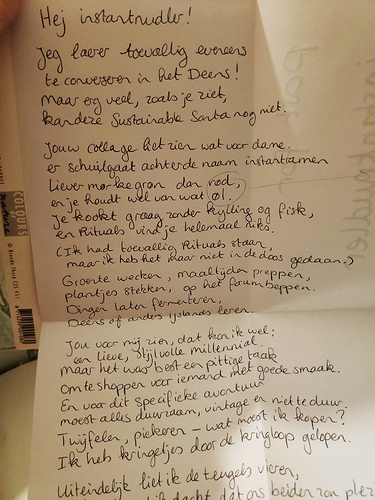 Hej instantnudler!
Jeg lærer toevallig eveneens
te converseren in het Deens!
Maar erg veel, zoals je ziet,
kan deze Sustainable Santa nog niet.
Jouw collage liet zien wat voor dame
er schuilgaat achter de naam instantramen
Liever mørkegrøn dan rød,
en je houdt wel van wat øl.
Je kookt graag zonder kylling og fisk,
en Rituals vind je helemaal niks.
(Ik had toevallig Rituals staan,
maar ik heb het maar niet in de doos gedaan.)
Groente wecken, maaltijden preppen,
plantjes stekken, op het forum beppen.
Dingen laten fermenteren,
Deens of anders IJslands leren.
Jou voor mij zien, dat kon ik wel:
een lieve, stijlvolle millennial.
Maar het was best een pittige taak
om te shoppen voor iemand met goede smaak.
En voor dit specifieke avontuur
moest alles duurzaam, vintage en niet te duur.
Twijfelen, piekeren - wat moest ik kopen?
Ik heb kringetjes door de kringloop gelopen.
Uiteindelijk liet ik de teugels vieren,
ik dacht dat ons beiden zou
COLOURS